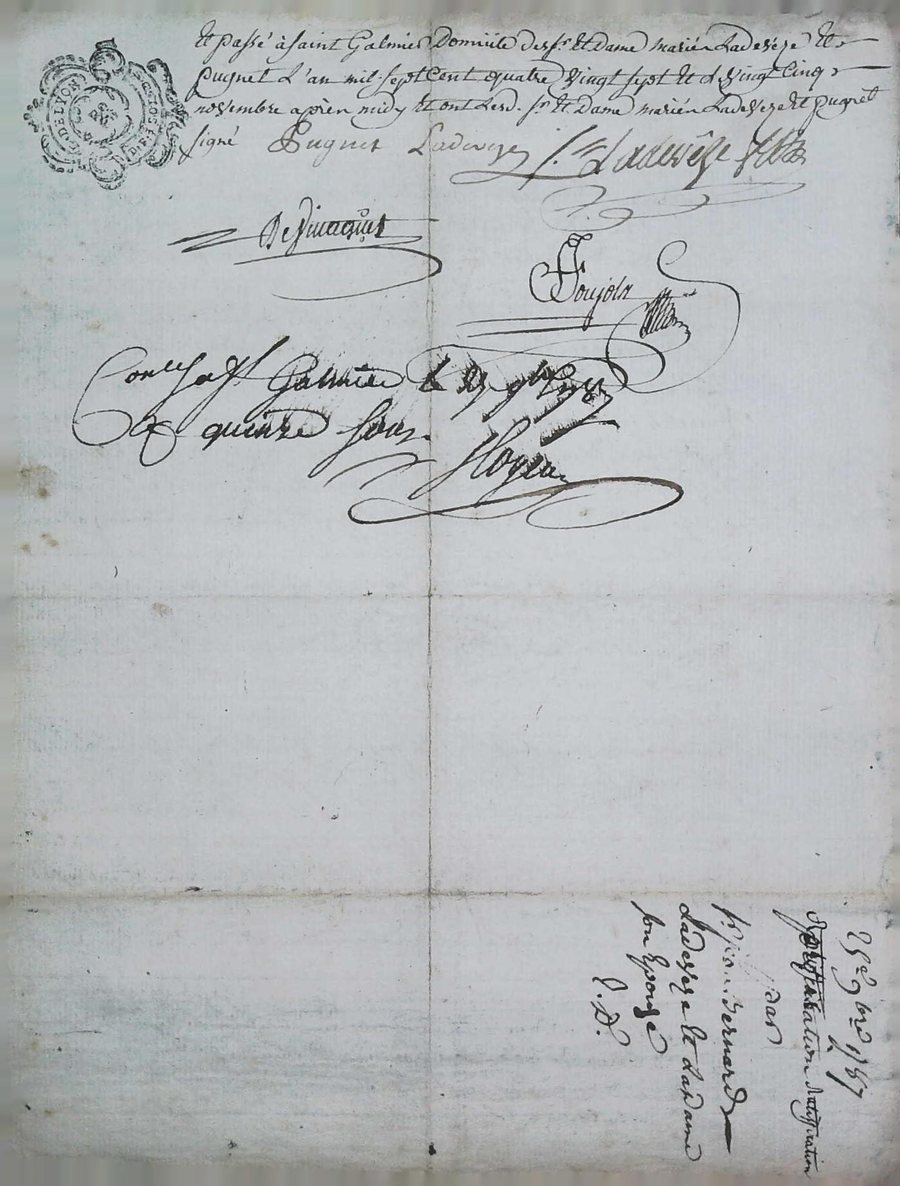 et passé à Saint Galmier Domicile des sr. et Dame mariés Ladevéze et
Puguet L'an mil Sept Cent quatre vingt Sept et le vingt Cinq
novembre après midy et ont Lesd. sr. et Dame mariés Ladeveze et puguet
signé Puguet Ladeveze Ladevéze
DE LYON
Con.lé à St Galmier le 25 9bre 1787
quinze sous
25e. 9bre 1787
ratiffication
par
sr. jean Bernard
Ladeveze et La Dame
son Epouze